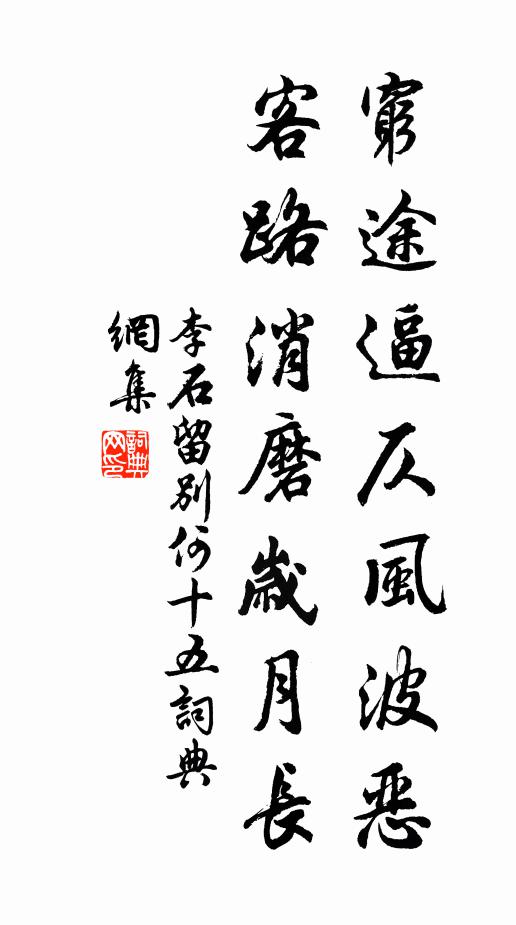 窮途逼仄風波惡
客路消磨歲月長
李石留別何十五詞典
網集
詞典
網印